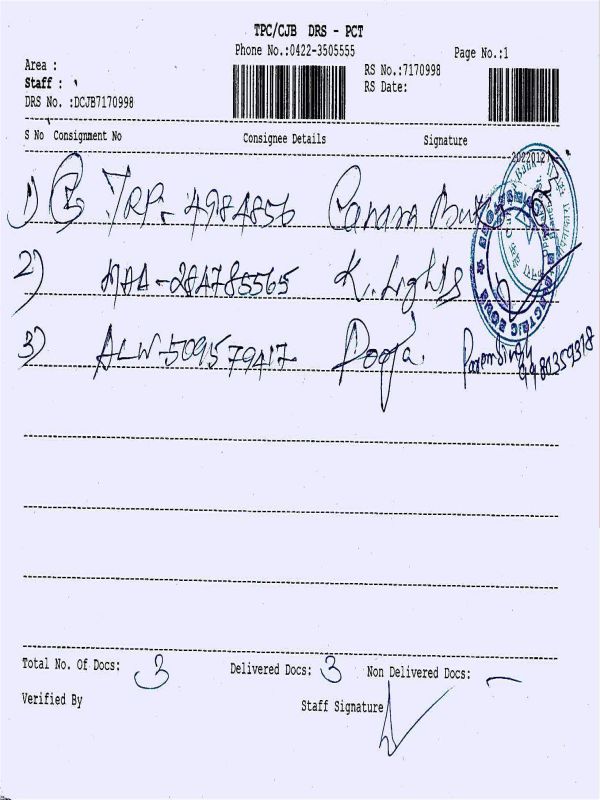 TPC/CJB DRS - PCT
Phone No.:0422-3505555
Page No.:1
Area :
RS No.:7170998
Staff :
RS Date:
DRS No. :DCJB7170998
S No Consignment No Consignee Details Signature
20220127
1) TRP- 4984856 Canara Bank
2) MAA-284785565 K. Lights
3) ALW-509579417 Pooja.
9980359318
Total No. Of Docs: 3 Delivered Docs: 3 Non Delivered Docs: —
Verified By
Staff Signature